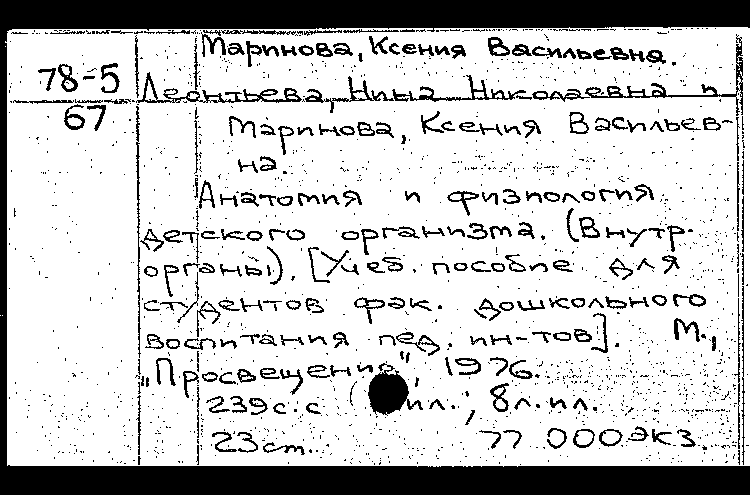 Маринова, Ксения Васильевна.
78-5
67
Леонтьева, Нина Николаевна и
Маринова, Ксения Васильев-
на.
Анатомия и физиология
детского организма. (Внутр.
органы). [Учеб. пособие для
студентов фак. дошкольного
воспитания пед. ин-тов]. М.,
"Просвещение", 1976.
239с. с ил.; 8л. ил.
23см. 77 000экз.